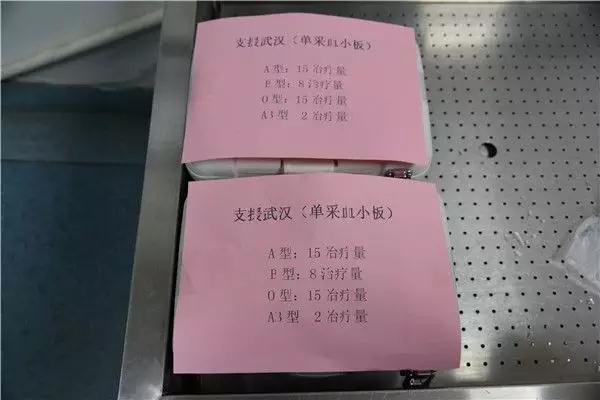 支援武汉（单采血小板）
A 型：15 治疗量
B 型：8 治疗量
O 型：15 治疗量
AB 型 2 治疗量
支援武汉（单采血小板）
A 型：15 治疗量
B 型：8 治疗量
O 型：15 治疗量
AB 型 2 治疗量